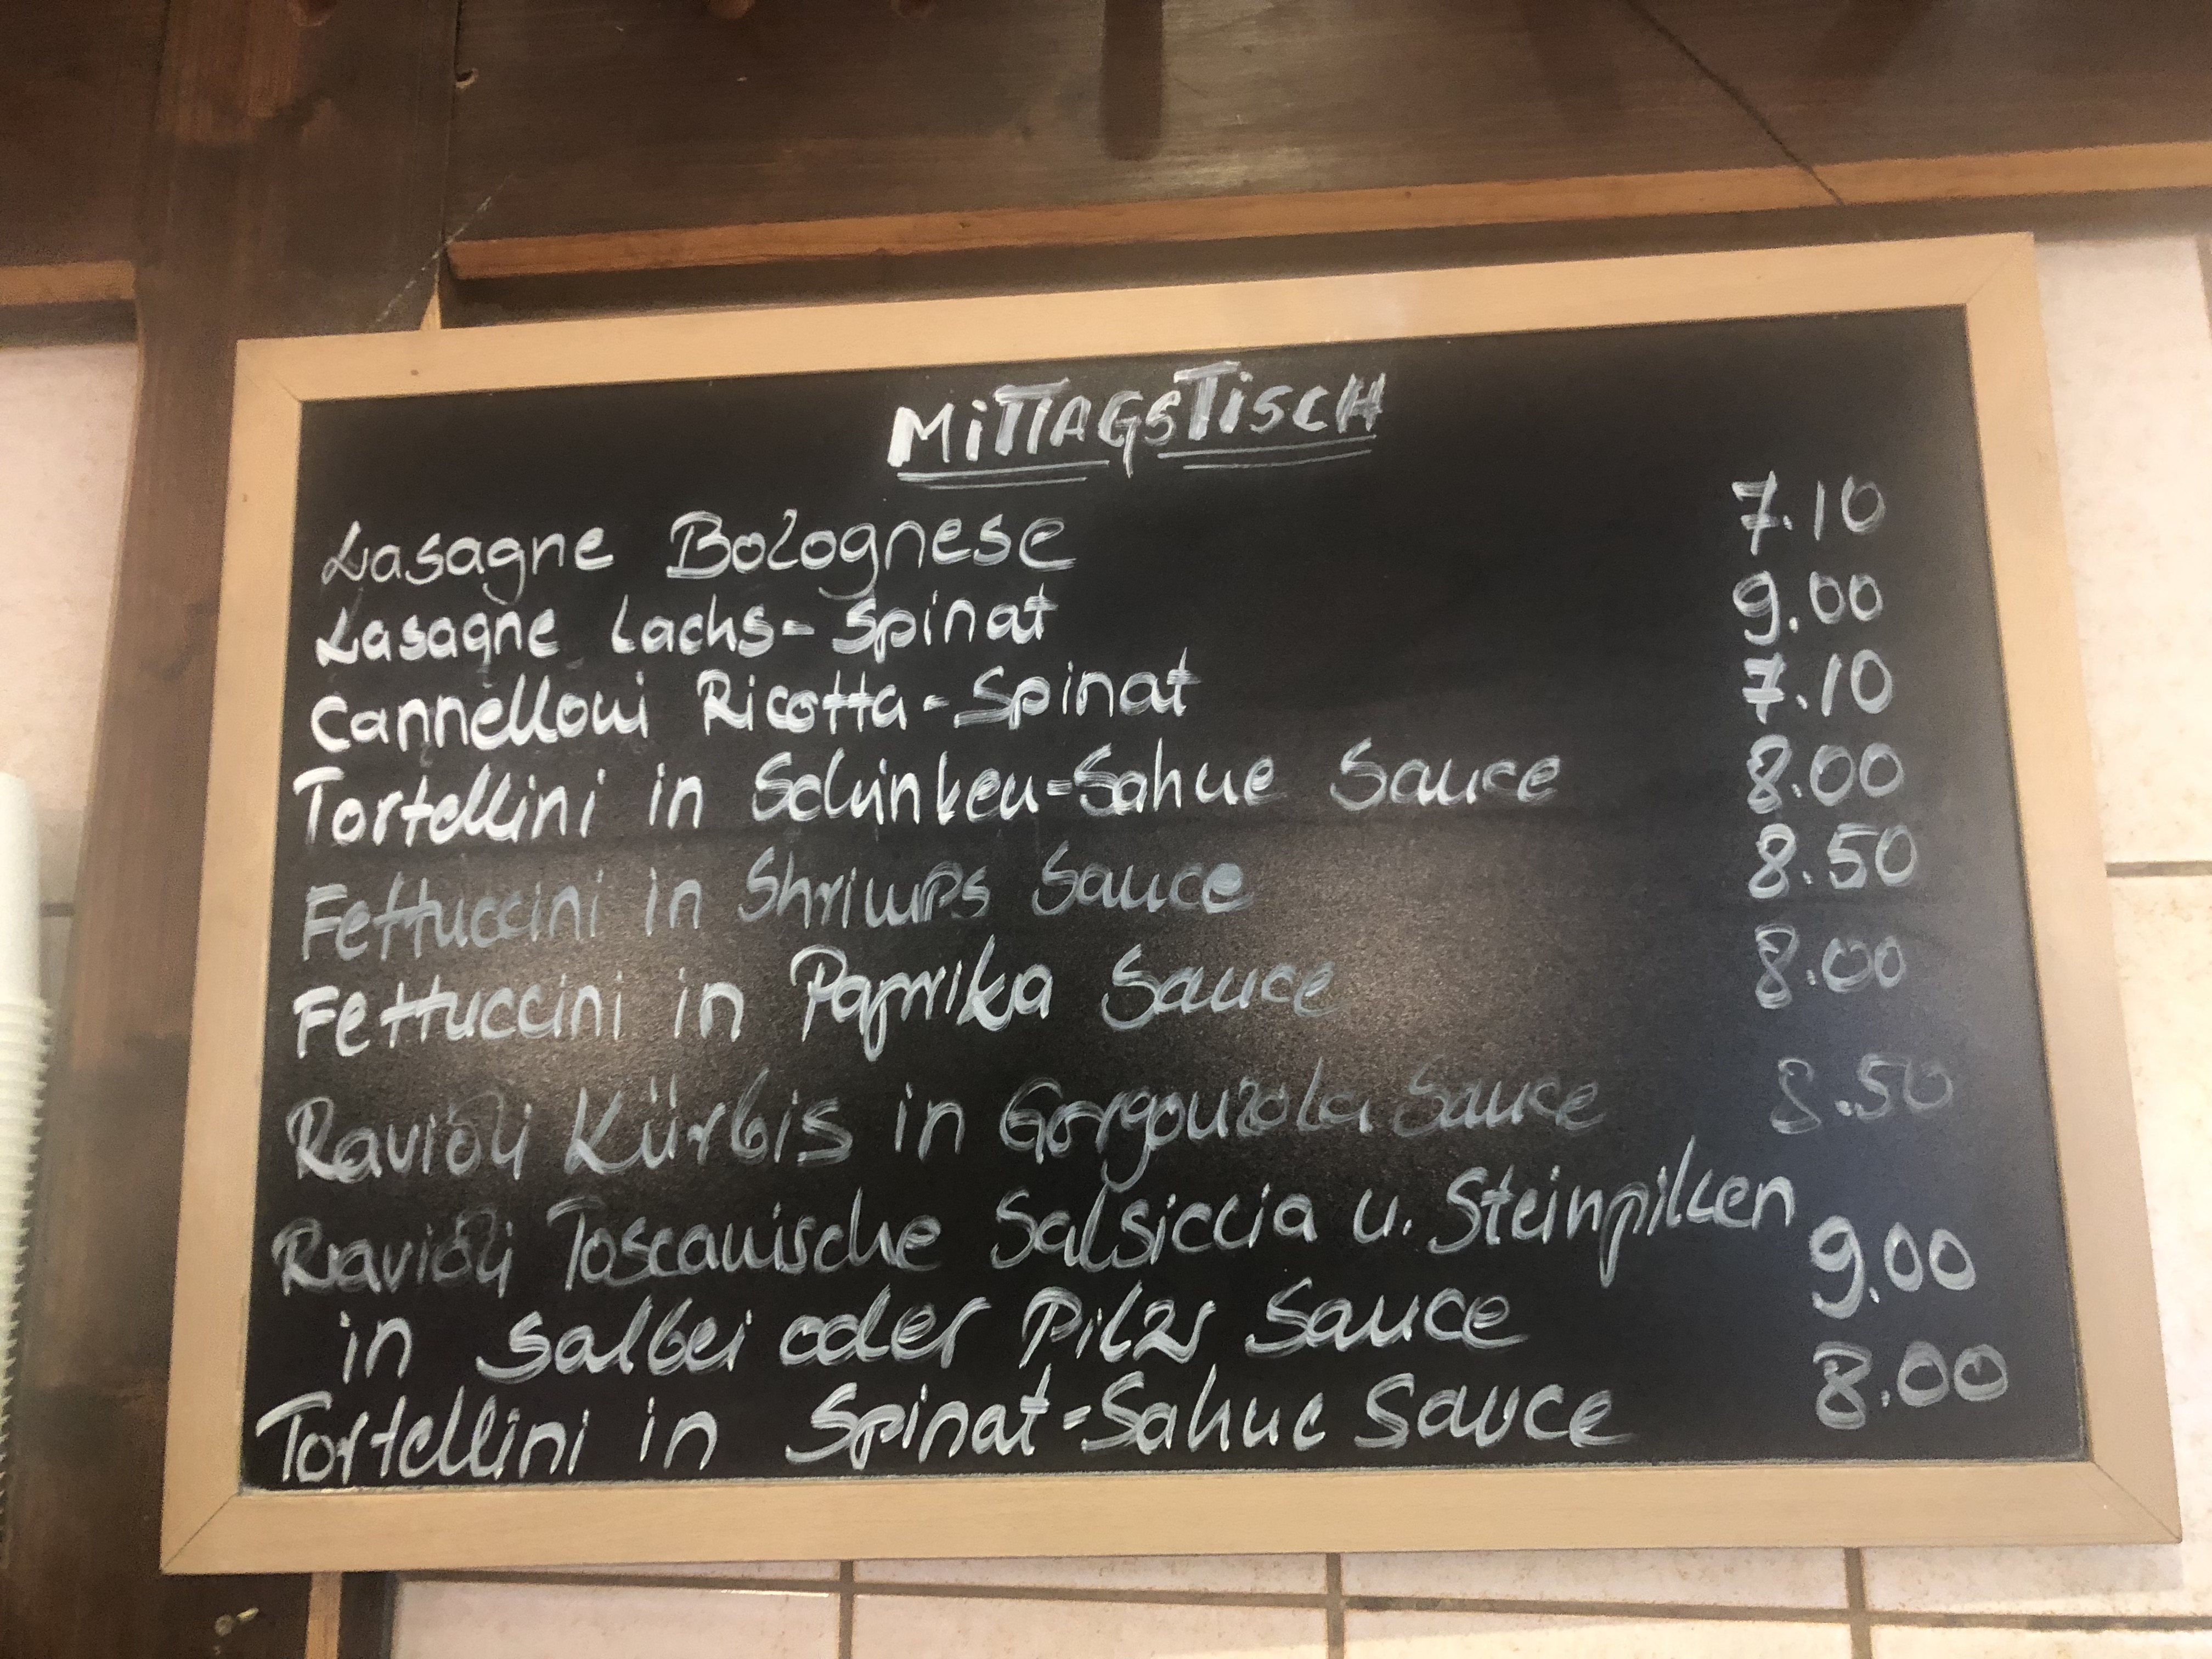 MiTTAGSTiSCH
Lasagne Bolognese 7.10
Lasagne Lachs-Spinat 9.00
Cannelloni Ricotta-Spinat 7.10
Tortellini in Schinken-Sahne Sauce 8.00
Fettuccini in Shrimps Sauce 8.50
Fettuccini in Paprika Sauce 8.00
Ravioli Kürbis in Gorgonzola Sauce 8.50
Ravioli Toscanische Salsiccia u. Steinpilzen
in Salbei oder Pilze Sauce 9.00
Tortellini in Spinat-Sahne Sauce 8.00